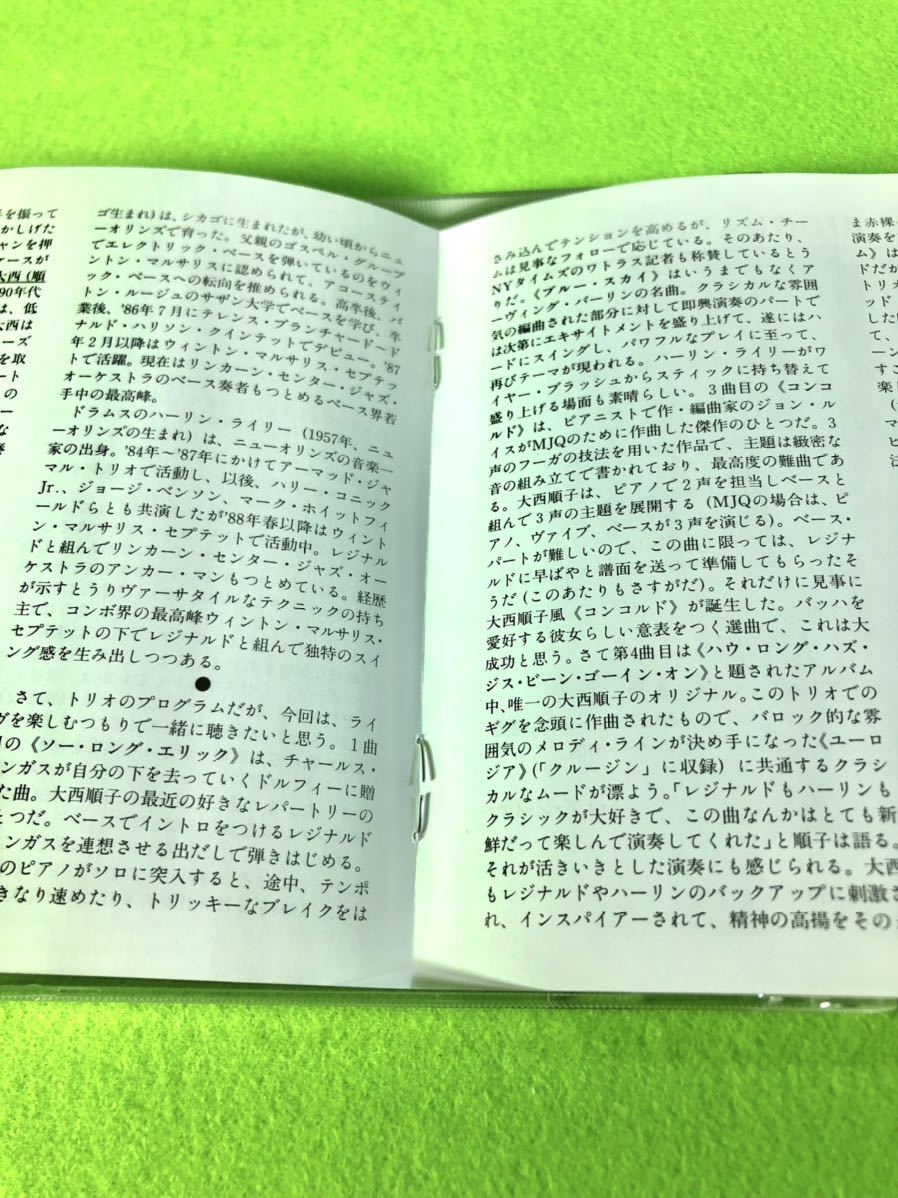 を振って
かしげた
ャンを押
ァースが
大西(順
90年代
は、低
大西は
ーズ
を取
ート
の
ー
な
ゴ生まれ)は、シカゴに生まれたが、幼い頃からニュ
ーオリンズで育った。父親のゴスペル・グループ
でエレクトリック・ベースを弾いているのをウィ
ントン・マルサリスに認められて、アコースティ
ック・ベースへの転向を推められる。高卒後、バ
トン・ルージュのサザン大学でベースを学び、卒
業後、'86年7月にテレンス・ブランチャード=ド
ナルド・ハリソン・クインテットでデビュー。'87
年2月以降はウィントン・マルサリス・セプテッ
トで活躍。現在はリンカーン・センター・ジャズ・
オーケストラのベース奏者もつとめるベース界若
手中の最高峰。
ドラムスのハーリン・ライリー(1957年、ニュ
ーオリンズの生まれ)は、ニューオリンズの音楽一
家の出身。'84年〜'87年にかけてアーマッド・ジャ
マル・トリオで活動し、以後、ハリー・コニック
Jr.、ジョージ・ベンソン、マーク・ホイットフィ
ールドらとも共演したが'88年春以降はウィント
ン・マルサリス・セプテットで活動中。レジナル
ドと組んでリンカーン・センター・ジャズ・オー
ケストラのアンカー・マンもつとめている。経歴
が示すとうりヴァーサタイルなテクニックの持ち
主で、コンボ界の最高峰ウィントン・マルサリス・
セプテットの下でレジナルドと組んで独特のスイ
ング感を生み出しつつある。
●
さて、トリオのプログラムだが、今回は、ライ
ヴを楽しむつもりで一緒に聴きたいと思う。1曲
目の《ソー・ロング・エリック》は、チャールス・
ンガスが自分の下を去っていくドルフィーに贈
た曲。大西順子の最近の好きなレパートリーの
とつだ。ベースでイントロをつけるレジナルド
ンガスを連想させる出だしで弾きはじめる。
のピアノがソロに突入すると、途中、テンポ
きなり速めたり、トリッキーなブレイクをは
さみ込んでテンションを高めるが、リズム・チー
ムは見事なフォローで応じている。そのあたり、
NYタイムズのワトラス記者も称賛しているとう
りだ。《ブルー・スカイ》はいうまでもなくア
ーヴィング・バーリンの名曲。クラシカルな雰囲
気の編曲された部分に対して即興演奏のパートで
は次第にエキサイトメントを盛り上げて、遂にはハ
ードにスイングし、パワフルなプレイに至って、
再びテーマが現われる。ハーリン・ライリーがワ
イヤー・ブラッシュからスティックに持ち替えて
盛り上げる場面も素晴らしい。3曲目の《コンコ
ルド》は、ピアニストで作・編曲家のジョン・ル
イスがMJQのために作曲した傑作のひとつだ。3
声のフーガの技法を用いた作品で、主題は緻密な
音の組み立てで書かれており、最高度の難曲であ
る。大西順子は、ピアノで2声を担当しベースと
組んで3声の主題を展開する(MJQの場合は、ピ
アノ、ヴァイブ、ベースが3声を演じる)。ベース・
パートが難しいので、この曲に限っては、レジナ
ルドに早ばやと譜面を送って準備してもらったそ
うだ(このあたりもさすがだ)。それだけに見事に
大西順子風《コンコルド》が誕生した。バッハを
愛好する彼女らしい意表をつく選曲で、これは大
成功と思う。さて第4曲目は《ハウ・ロング・ハズ・
ジス・ビーン・ゴーイン・オン》と題されたアルバム
中、唯一の大西順子のオリジナル。このトリオでの
ギグを念頭に作曲されたもので、バロック的な雰
囲気のメロディ・ラインが決め手になった《ユーロ
ジア》(「クルージン」に収録)に共通するクラシ
カルなムードが漂よう。「レジナルドもハーリンも
クラシックが大好きで、この曲なんかはとても新
鮮だって楽しんで演奏してくれた」と順子は語る。
それが活きいきとした演奏にも感じられる。大西
もレジナルドやハーリンのバックアップに刺激さ
れ、インスパイアーされて、精神の高揚をその
ま赤裸
演奏を
ム》は
ドだか
トリオ
ッド
した
ーン
すご
楽し
マ
注